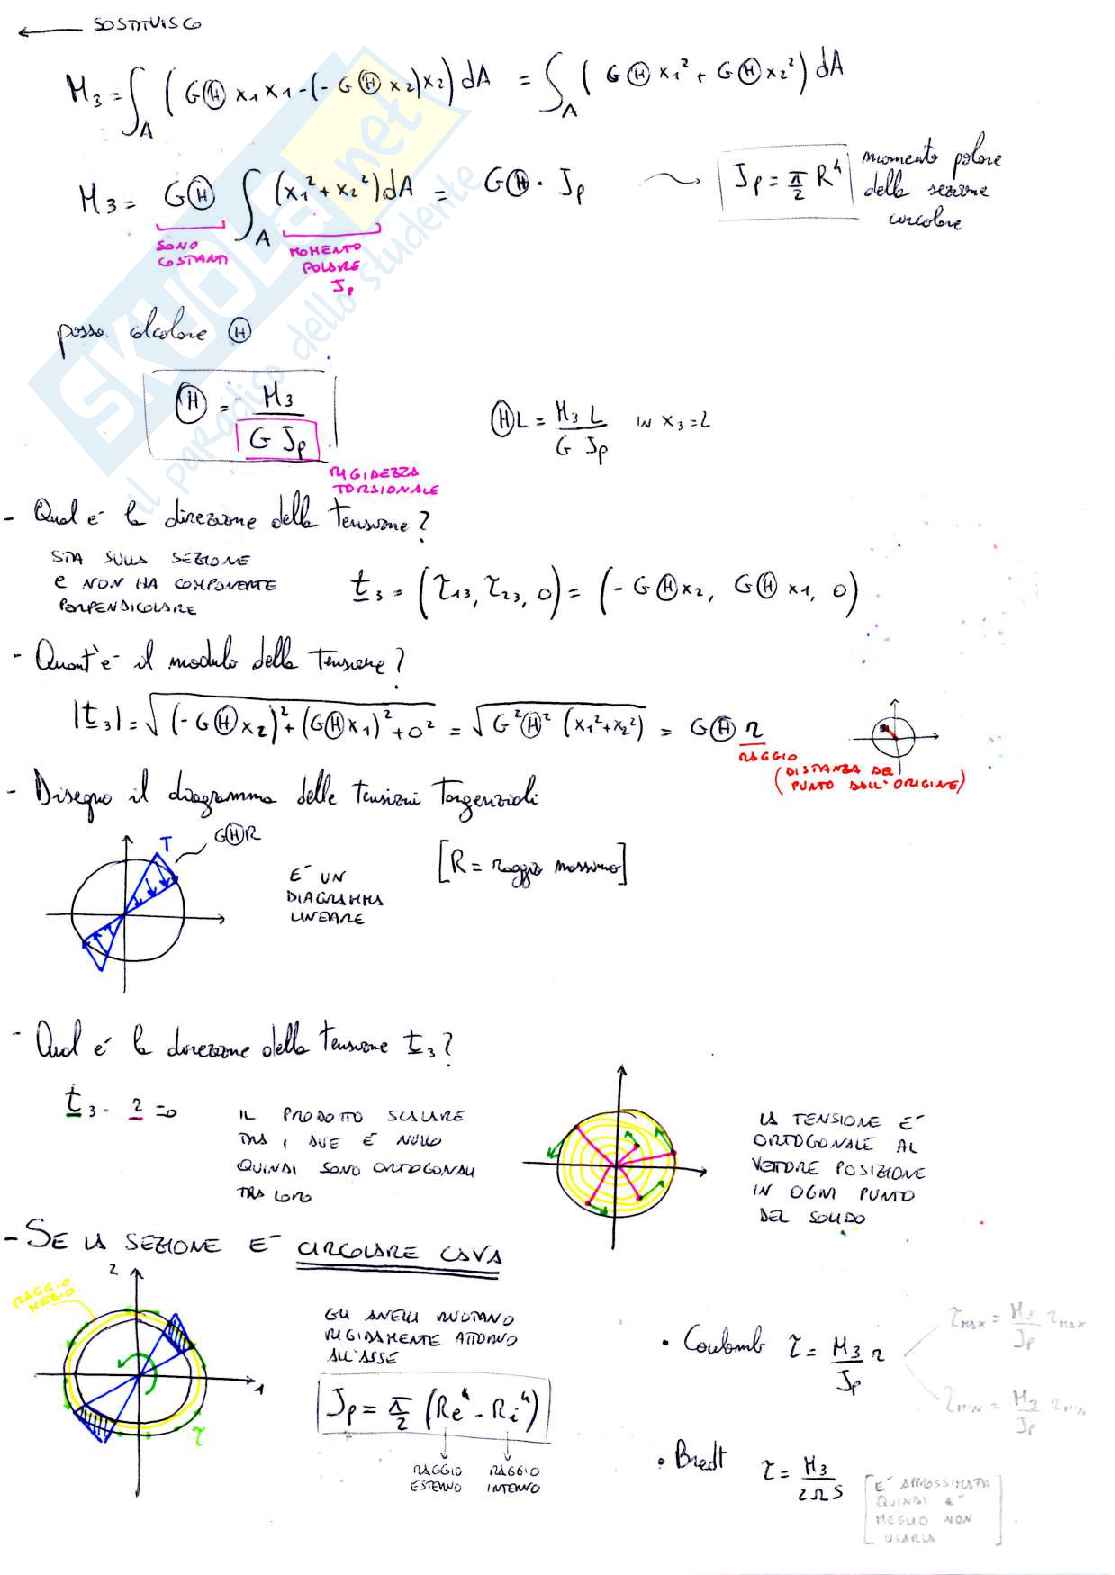 ← SOSTITUISCO
M3 = ∫A (GⒽ x1 x1 - (-GⒽ x2) x2) dA = ∫A (GⒽ x1² + GⒽ x2²) dA
M3 = GⒽ ∫A (x1² + x2²) dA = GⒽ · Jp
Jp = π/2 R⁴
momento polare
della sezione
circolare
SONO
COSTANTI
MOMENTO
POLARE
Jp
posso calcolare Ⓗ
Ⓗ = M3 / G Jp
ⒽL = M3 L / G Jp IN x3 = L
RIGIDEZZA
TORSIONALE
- Qual è la direzione della tensione?
STA SULLA SEZIONE
E NON HA COMPONENTE
PERPENDICOLARE
t3 = (τ13, τ23, 0) = (-GⒽx2, GⒽx1, 0)
- Quant'è il modulo della tensione?
|t3| = √((-GⒽx2)² + (GⒽx1)² + 0²) = √(G²Ⓗ² (x1²+x2²)) = GⒽ r
RAGGIO
(DISTANZA DEL
PUNTO DALL'ORIGINE)
- Disegno il diagramma delle tensioni tangenziali
τ
GⒽR
E' UN
DIAGRAMMA
LINEARE
[R = raggio massimo]
- Qual è la direzione della tensione t3?
t3 · r = 0
IL PRODOTTO SCALARE
TRA I DUE È NULLO
QUINDI SONO ORTOGONALI
TRA LORO
LA TENSIONE E'
ORTOGONALE AL
VETTORE POSIZIONE
IN OGNI PUNTO
DEL SOLIDO
- SE LA SEZIONE E' CIRCOLARE CAVA
RAGGIO
MEDIO
2
1
τ
GLI ANELLI RUOTANO
RIGIDAMENTE ATTORNO
ALL'ASSE
Jp = π/2 (Re⁴ - Ri⁴)
RAGGIO
ESTERNO
RAGGIO
INTERNO
• Coulomb τ = M3/Jp r
τMAX = M3/Jp rMAX
τMIN = M3/Jp rMIN
• Bredt τ = M3 / 2ΩS
[E' APPROSSIMATA
QUINDI E'
MEGLIO NON
USARLA]
SKUOLA.net
il paradiso dello studente